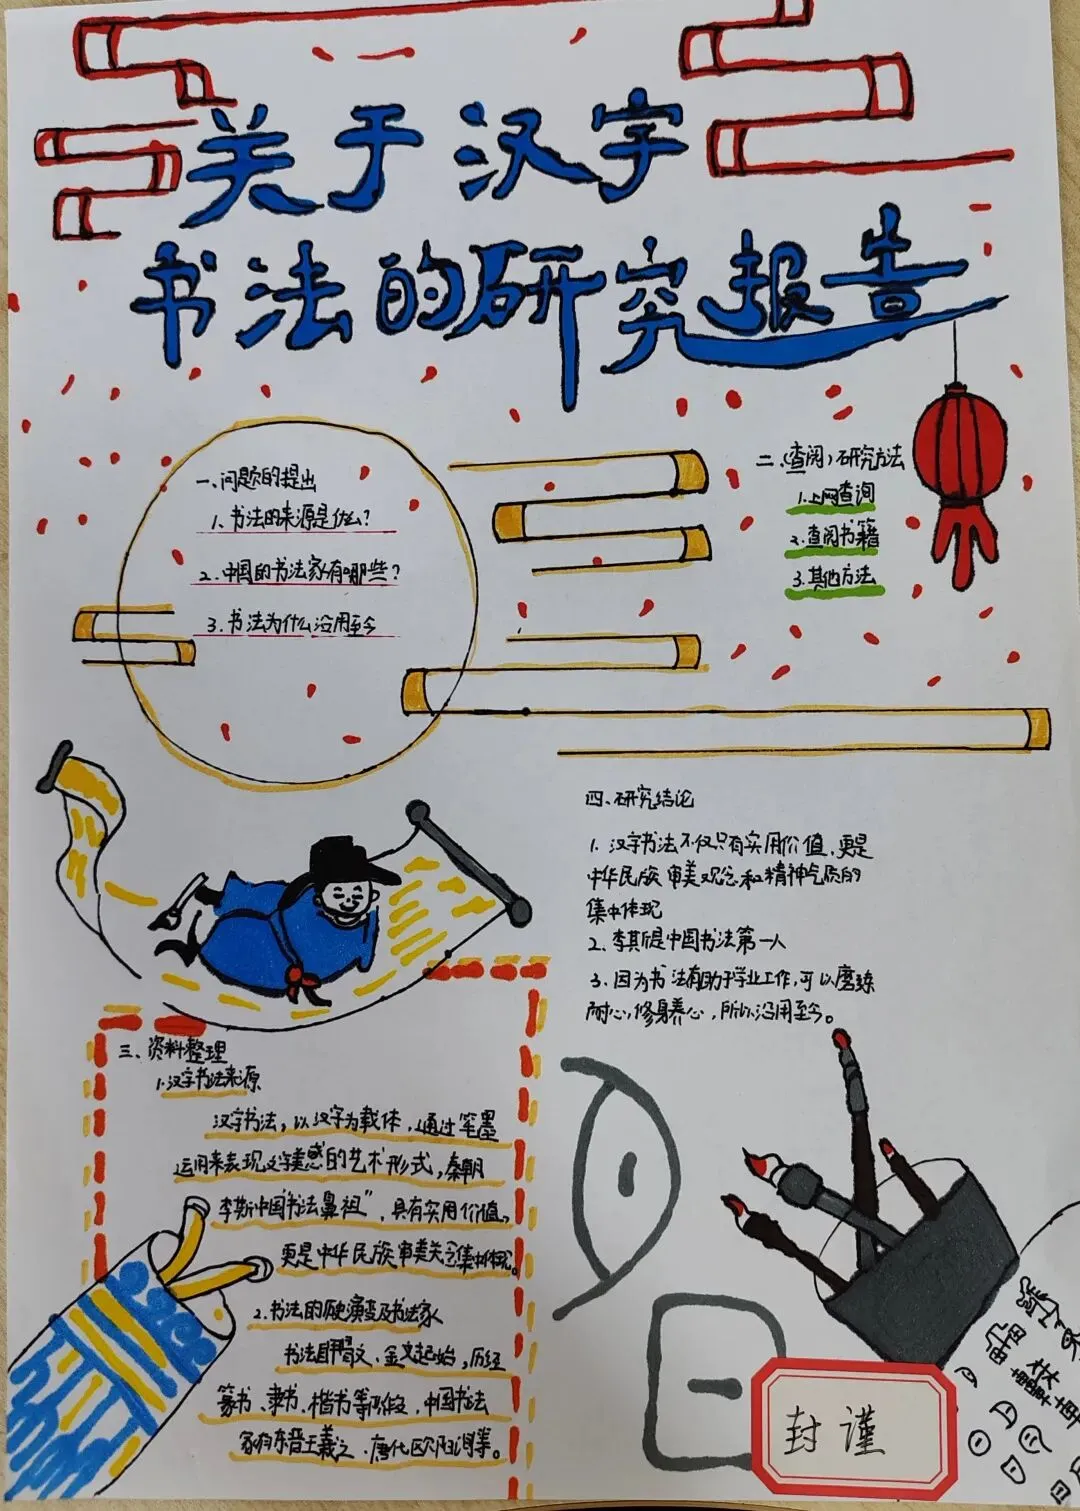 关于汉字
书法的研究报告
一、问题的提出
1、书法的来源是什么？
2、中国的书法家有哪些？
3、书法为什么沿用至今
二、(查阅)研究方法
1.上网查询
2.查阅书籍
3.其他方法
四、研究结论
1、汉字书法不仅只有实用价值，更是
中华民族审美观念和精神气质的
集中体现
2、李斯是中国书法第一人
3、因为书法有助于学业工作，可以磨练
耐心，修身养心，所以沿用至今。
三、资料整理
1.汉字书法来源
汉字书法，以汉字为载体，通过笔墨
运用来表现文字美感的艺术形式，秦朝
李斯中国"书法鼻祖"，具有实用价值，
更是中华民族审美关念集中体现。
2.书法的历史演变及书法家
书法自甲骨文、金文起始，历经
篆书、隶书、楷书等阶段，中国书法
家有东晋王羲之、唐代欧阳询等。
封谨